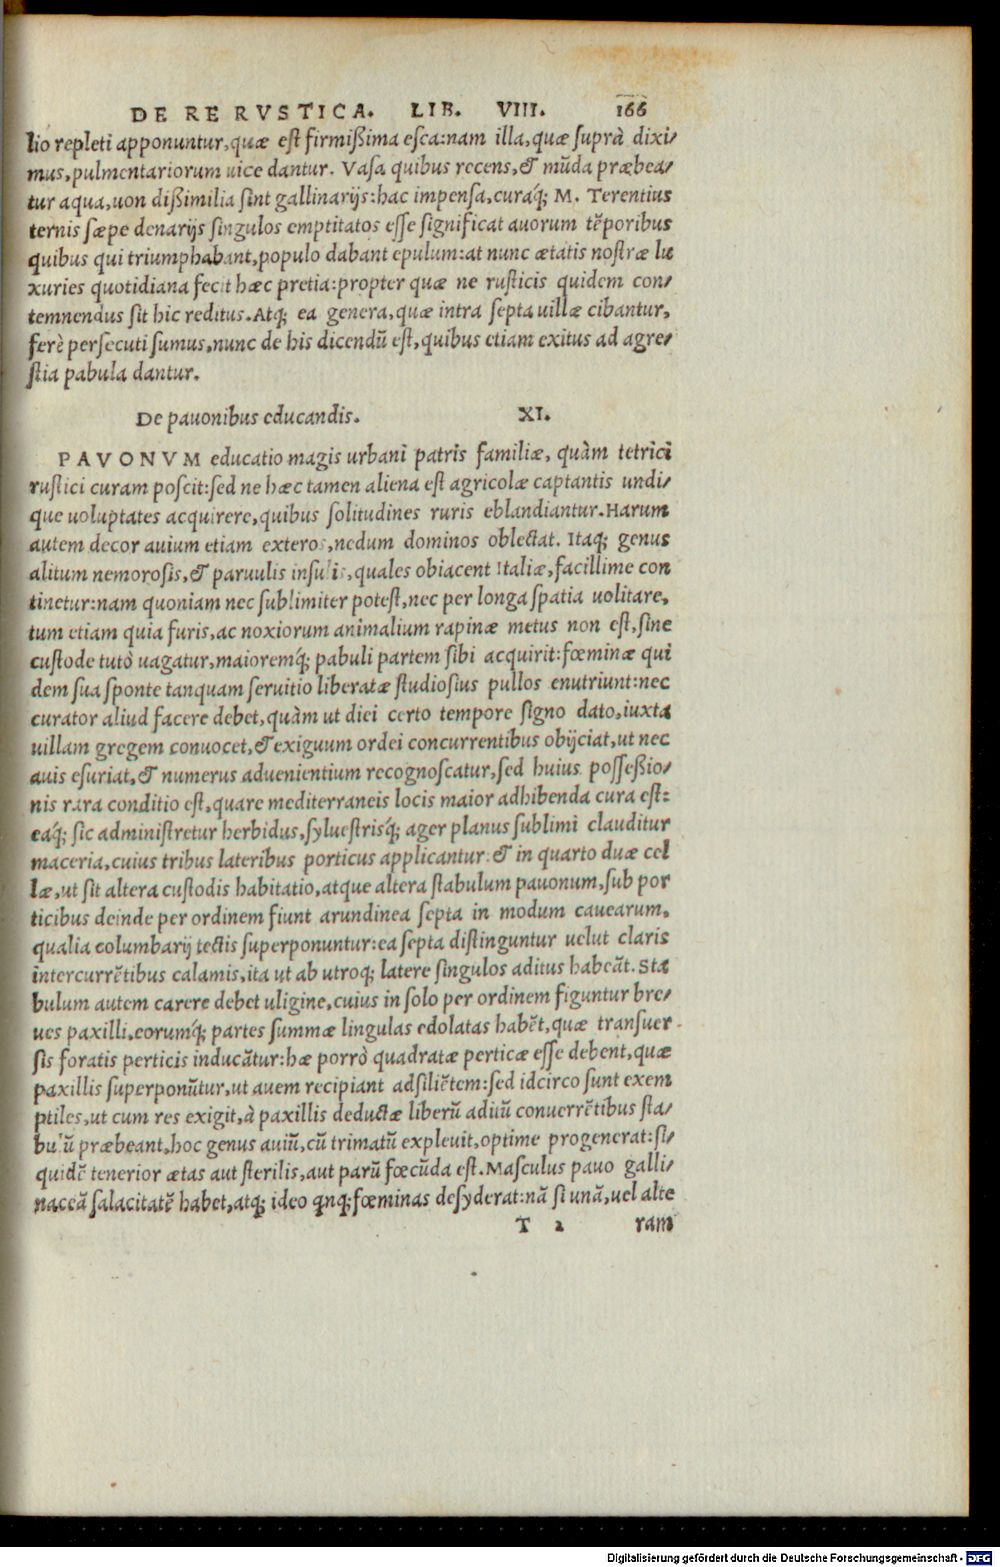 DE RE RVSTICA. LIB. VIII. 166
lio repleti apponuntur,quæ est firmißima esca:nam illa,quæ suprà dixi/
mus,pulmentariorum uice dantur. Vasa quibus recens,& mūda præbea/
tur aqua,uon dißimilia sint gallinarijs:hac impensa,curaq́; M. Terentius
ternis sæpe denarijs singulos emptitatos esse significat auorum tēporibus
quibus qui triumphabant,populo dabant epulum:at nunc ætatis nostræ lu
xuries quotidiana fecit hæc pretia:propter quæ ne rusticis quidem con/
temnendus sit hic reditus.Atq; ea genera,quæ intra septa uillæ cibantur,
ferè persecuti sumus,nunc de his dicendū est,quibus etiam exitus ad agre/
stia pabula dantur.
De pauonibus educandis. XI.
PAVONVM educatio magis urbani patris familiæ, quàm tetrici
rustici curam poscit:sed ne hæc tamen aliena est agricolæ captantis undi/
que uoluptates acquirere,quibus solitudines ruris eblandiantur.Harum
autem decor auium etiam exteros,nedum dominos oblectat. Itaq; genus
alitum nemorosis,& paruulis insulis,quales obiacent Italiæ,facillime con
tinetur:nam quoniam nec sublimiter potest,nec per longa spatia uolitare,
tum etiam quia furis,ac noxiorum animalium rapinæ metus non est,sine
custode tutò uagatur,maioremq́; pabuli partem sibi acquirit:fœminæ qui
dem sua sponte tanquam seruitio liberatæ studiosius pullos enutriunt:nec
curator aliud facere debet,quàm ut diei certo tempore signo dato,iuxta
uillam gregem conuocet,& exiguum ordei concurrentibus obijciat,ut nec
auis esuriat,& numerus aduenientium recognoscatur,sed huius posseßio/
nis rara conditio est,quare mediterraneis locis maior adhibenda cura est:
eaq́; sic administretur herbidus,syluestrisq́; ager planus sublimi clauditur
maceria,cuius tribus lateribus porticus applicantur:& in quarto duæ cel
læ,ut sit altera custodis habitatio,atque altera stabulum pauonum,sub por
ticibus deinde per ordinem fiunt arundinea septa in modum cauearum,
qualia columbarij tectis superponuntur:ea septa distinguntur uelut claris
intercurrētibus calamis,ita ut ab utroq; latere singulos aditus habeāt.Sta
bulum autem carere debet uligine,cuius in solo per ordinem figuntur bre/
ues paxilli,eorumq́; partes summæ lingulas edolatas habēt,quæ transuer
sis foratis perticis inducātur:hæ porrò quadratæ perticæ esse debent,quæ
paxillis superponūtur,ut auem recipiant adsiliētem:sed idcirco sunt exem
ptiles,ut cum res exigit,à paxillis deductæ liberū aditū conuerrētibus sta/
bulū præbeant,hoc genus auiū,cū trimatū expleuit,optime progenerat:si/
quidē tenerior ætas aut sterilis,aut parū fœcūda est.Masculus pauo galli/
naceā salacitatē habet,atq; ideo qnq; fœminas desyderat:nā si unā,uel alte
T 2 ram
Digitalisierung gefördert durch die Deutsche Forschungsgemeinschaft - DFG